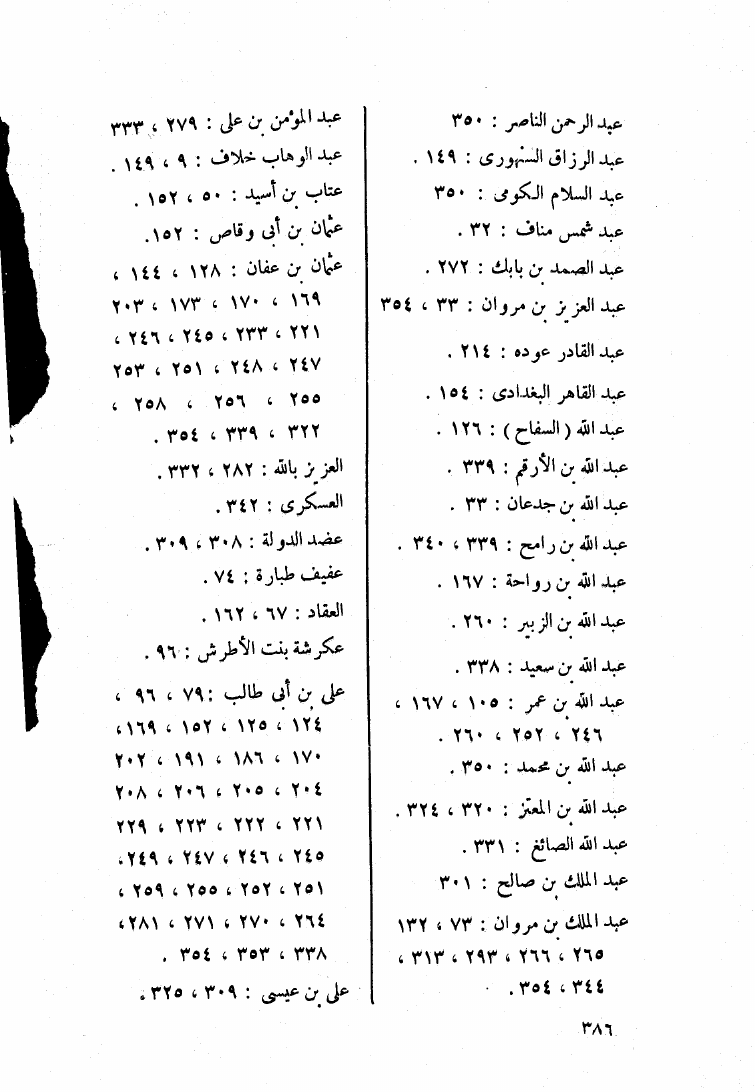 عبد الرحمن الناصر : ٣٥٠
عبد الرزاق السنهورى : ١٤٩ .
عبد السلام الكومى : ٣٥٠
عبد شمس مناف : ٣٢ .
عبد الصمد بن بابك : ٢٧٢ .
عبد العزيز بن مروان : ٣٣ ، ٣٥٤
عبد القادر عوده : ٢١٤ .
عبد القاهر البغدادى : ١٥٤ .
عبد الله ( السفاح ) : ١٢٦ .
عبد الله بن الأرقم : ٣٣٩ .
عبد الله بن جدعان : ٣٣ .
عبد الله بن رامح : ٣٣٩ ، ٣٤٠ .
عبد الله بن رواحة : ١٦٧ .
عبد الله بن الزبير : ٢٦٠ .
عبد الله بن سعيد : ٣٣٨ .
عبد الله بن عمر : ١٠٥ ، ١٦٧ ،
٢٤٦ ، ٢٥٢ ، ٢٦٠ .
عبد الله بن محمد : ٣٥٠ .
عبد الله بن المعتز : ٣٢٠ ، ٣٢٤ .
عبد الله الصائغ : ٣٣١ .
عبد الملك بن صالح : ٣٠١
عبد الملك بن مروان : ٧٣ ، ١٣٢
٢٦٥ ، ٢٦٦ ، ٢٩٣ ، ٣١٣ ،
٣٤٤ ، ٣٥٤ .
عبد المؤمن بن على : ٢٧٩ ، ٣٣٣
عبد الوهاب خلاف : ٩ ، ١٤٩ .
عتاب بن أسيد : ٥٠ ، ١٥٢ .
عثمان بن أبى وقاص : ١٥٢ .
عثمان بن عفان : ١٢٨ ، ١٤٤ ،
١٦٩ ، ١٧٠ ، ١٧٣ ، ٢٠٣
٢٢١ ، ٢٣٣ ، ٢٤٥ ، ٢٤٦ ،
٢٤٧ ، ٢٤٨ ، ٢٥١ ، ٢٥٣
٢٥٥ ، ٢٥٦ ، ٢٥٨ ،
٣٢٢ ، ٣٣٩ ، ٣٥٤ .
العزيز بالله : ٢٨٢ ، ٣٣٢ .
العسكرى : ٣٤٢ .
عضد الدولة : ٣٠٨ ، ٣٠٩ .
عفيف طبارة : ٧٤ .
العقاد : ٦٧ ، ١٦٢ .
عكرشة بنت الأطرش : ٩٦ .
على بن أبى طالب : ٧٩ ، ٩٦ ،
١٢٤ ، ١٢٥ ، ١٥٢ ، ١٦٩ ،
١٧٠ ، ١٨٦ ، ١٩١ ، ٢٠٢
٢٠٤ ، ٢٠٥ ، ٢٠٦ ، ٢٠٨
٢٢١ ، ٢٢٢ ، ٢٢٣ ، ٢٢٩
٢٤٥ ، ٢٤٦ ، ٢٤٧ ، ٢٤٩ ،
٢٥١ ، ٢٥٢ ، ٢٥٥ ، ٢٥٩ ،
٢٦٤ ، ٢٧٠ ، ٢٧١ ، ٢٨١ ،
٣٣٨ ، ٣٥٣ ، ٣٥٤ .
على بن عيسى : ٣٠٩ ، ٣٢٥ .
٣٨٦